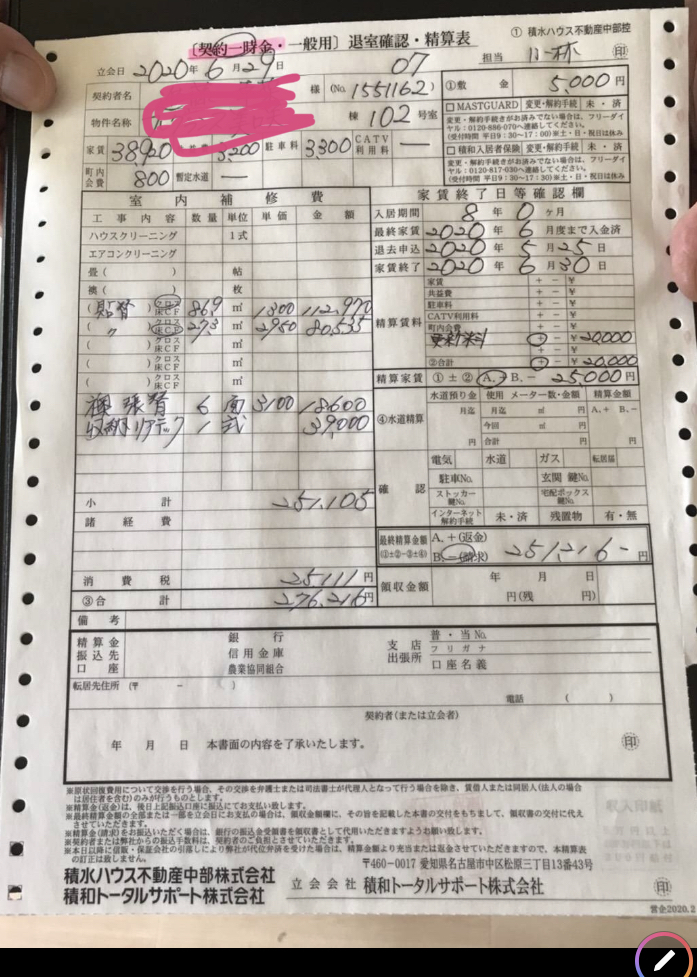 ① 積水ハウス不動産中部控
〔契約一時金・一般用〕退室確認・精算表
立会日 2020年 6月29日 07 担当 小林 印
契約者名 様 (No. 1551162)
物件名称 棟 102 号室
家賃 38,920 3,300 駐車料 3,300 CATV利用料 ―
町内会費 800 暫定水道 ―
①敷金 5,000円
□MASTGUARD 変更・解約手続 未・済
変更・解約手続きがお済みでない場合は、フリーダイヤル:0120-886-070へ連絡してください。
(受付時間 平日9:30~17:00)※土・日・祝日は休み
□積和入居者保険 変更・解約手続 未・済
変更・解約手続きがお済みでない場合は、フリーダイヤル:0120-817-030へ連絡してください。
(受付時間 平日9:30~17:30)※土・日・祝日は休み
室内補修費
工事内容 数量 単位 単価 金額
ハウスクリーニング 1式
エアコンクリーニング
畳( ) 帖
襖( ) 枚
(貼替)クロス 床CF 86.9 ㎡ 1300 112,970
( 〃 )クロス 床CF 27.3 ㎡ 2950 80,535
( )クロス 床CF ㎡
( )クロス 床CF ㎡
襖張替 6 面 3100 18600
1 式 39,000
小計 251,105
諸経費
消費税 25,111円
③合計 276,216円
家賃終了日等確認欄
入居期間 8年 0ヶ月
最終家賃 2020年 6月度まで入金済
退去申込 2020年 5月25日
家賃終了 2020年 6月30日
精算賃料
家賃 + - ¥
共益費 + - ¥
駐車料 + - ¥
CATV利用料 + - ¥
町内会費 + - ¥
更新料 + - ¥20,000
②合計 + - ¥20,000
精算家賃 ①±② A.+ B.- 25,000円
④水道精算 水道預り金 使用 メーター数・金額 精算金額
月迄 月迄 ㎥ 円 A.+ B.-
今回 ㎥ 円
円 合計 円 円
確認 電気 水道 ガス 転居届
駐車No. 玄関 鍵No.
ストッカー鍵No. 宅配ボックス鍵No.
インターネット解約手続 未・済 残置物 有・無
最終精算金額(①±②-③±④) A.+(返金) B.-(請求) 251,216-円
領収金額 年 月 日
円(残 円)
備考
精算金振込先口座 銀行 信用金庫 農業協同組合 支店 出張所 普・当No. フリガナ 口座名義
転居先住所(〒 - )
電話 ( )
契約者(または立会者)
年 月 日 本書面の内容を了承いたします。 印
※原状回復費用について交渉を行う場合、その交渉を弁護士または司法書士が代理人となって行う場合を除き、賃借人または同居人(法人の場合は居住者を含む)のみが行うものとします。
※精算金(返金)は、後日上記振込口座に振込にてお支払い致します。
※最終精算金額の全部または一部を立会日にお支払の場合は、領収金額欄に、その旨を記載した本書の交付をもちまして、領収書の交付に代えさせていただきます。
※精算金(請求)をお振込いただく場合は、銀行の振込金受領書を領収書として代用いただきますようお願い致します。
※契約者または弊社からの振込手数料は、契約者のご負担とさせていただきます。
※本日以降に信販・保証会社の引落しにより弊社が代位弁済を受けた場合は、精算金額より充当させていただきますので、本精算表の訂正は致しません。
〒460-0017 愛知県名古屋市中区松原三丁目13番43号
積水ハウス不動産中部株式会社
積和トータルサポート株式会社 立会会社 積和トータルサポート株式会社 印
営企2020.2